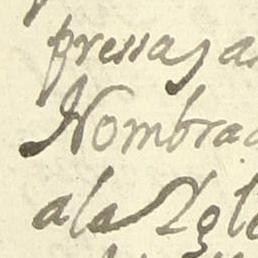 pressas, a
Nombra
a la Igle